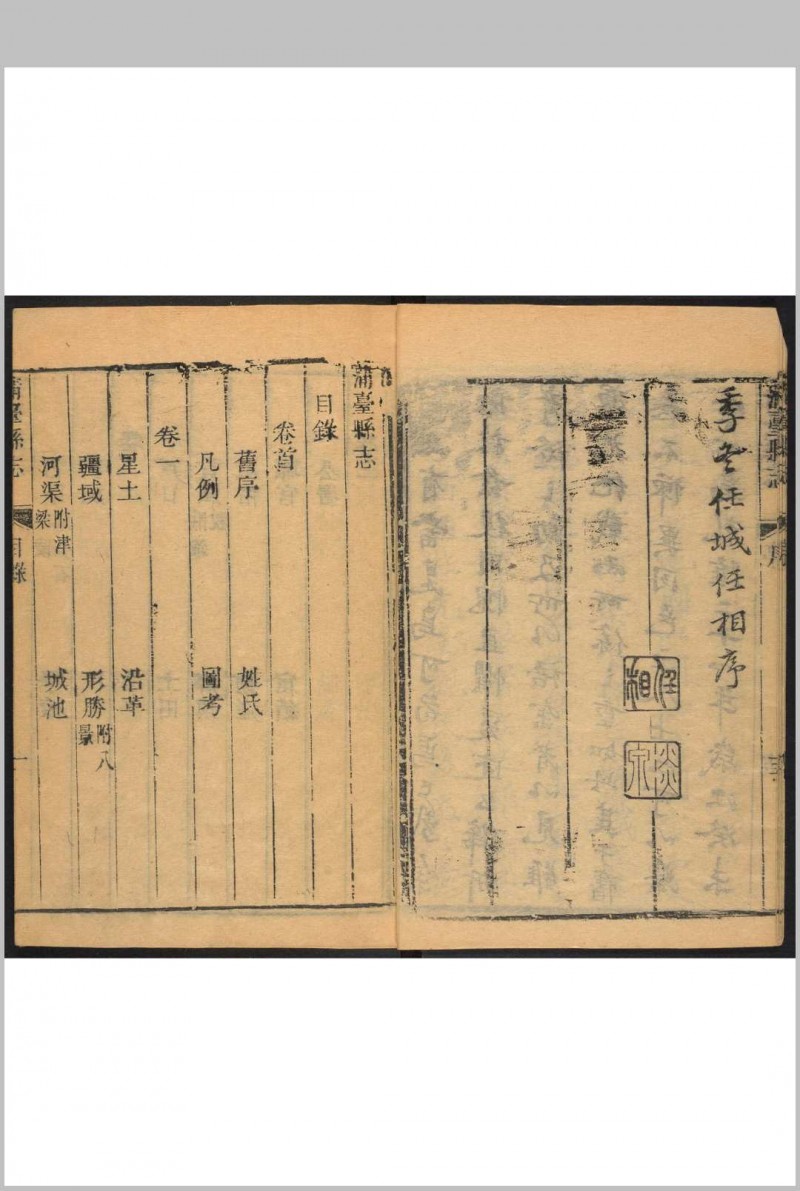 蒲臺縣志
序
季冬任城任相序
任相
蒲臺縣志
目錄
卷首
舊序 姓氏
凡例 圖考
卷一
星土 沿革
疆域 形勝附八景
河渠附津梁 城池
蒲臺縣志 目錄 一